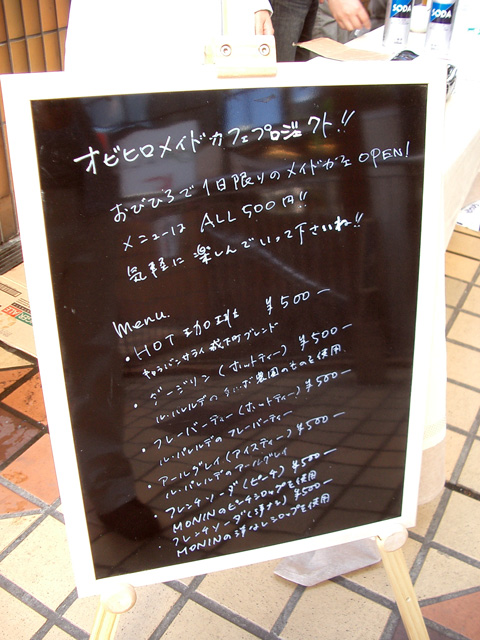 SODA
SODA
オビヒロメイドカフェプロジェクト!!
おびひろで1日限りのメイドカフェOPEN!
メニューは ALL 500円!!
気軽に楽しんでいって下さいね!!
Menu.
・HOT 珈琲 ¥500-
キャラバンサライ 城下町ブレンド
・ダージリン (ホットティー) ¥500-
ル・パレルデの 農園のものを使用
・フレーバーティー(ホットティー) ¥500-
ル・パレルデのフレーバーティー
・アールグレイ(アイスティー) ¥500-
ル・パレルデのアールグレイ
・フレンチソーダ(ピーチ) ¥500-
MONINのピーチシロップを使用
・フレンチソーダ(洋ナシ) ¥500-
MONINの洋なしシロップを使用